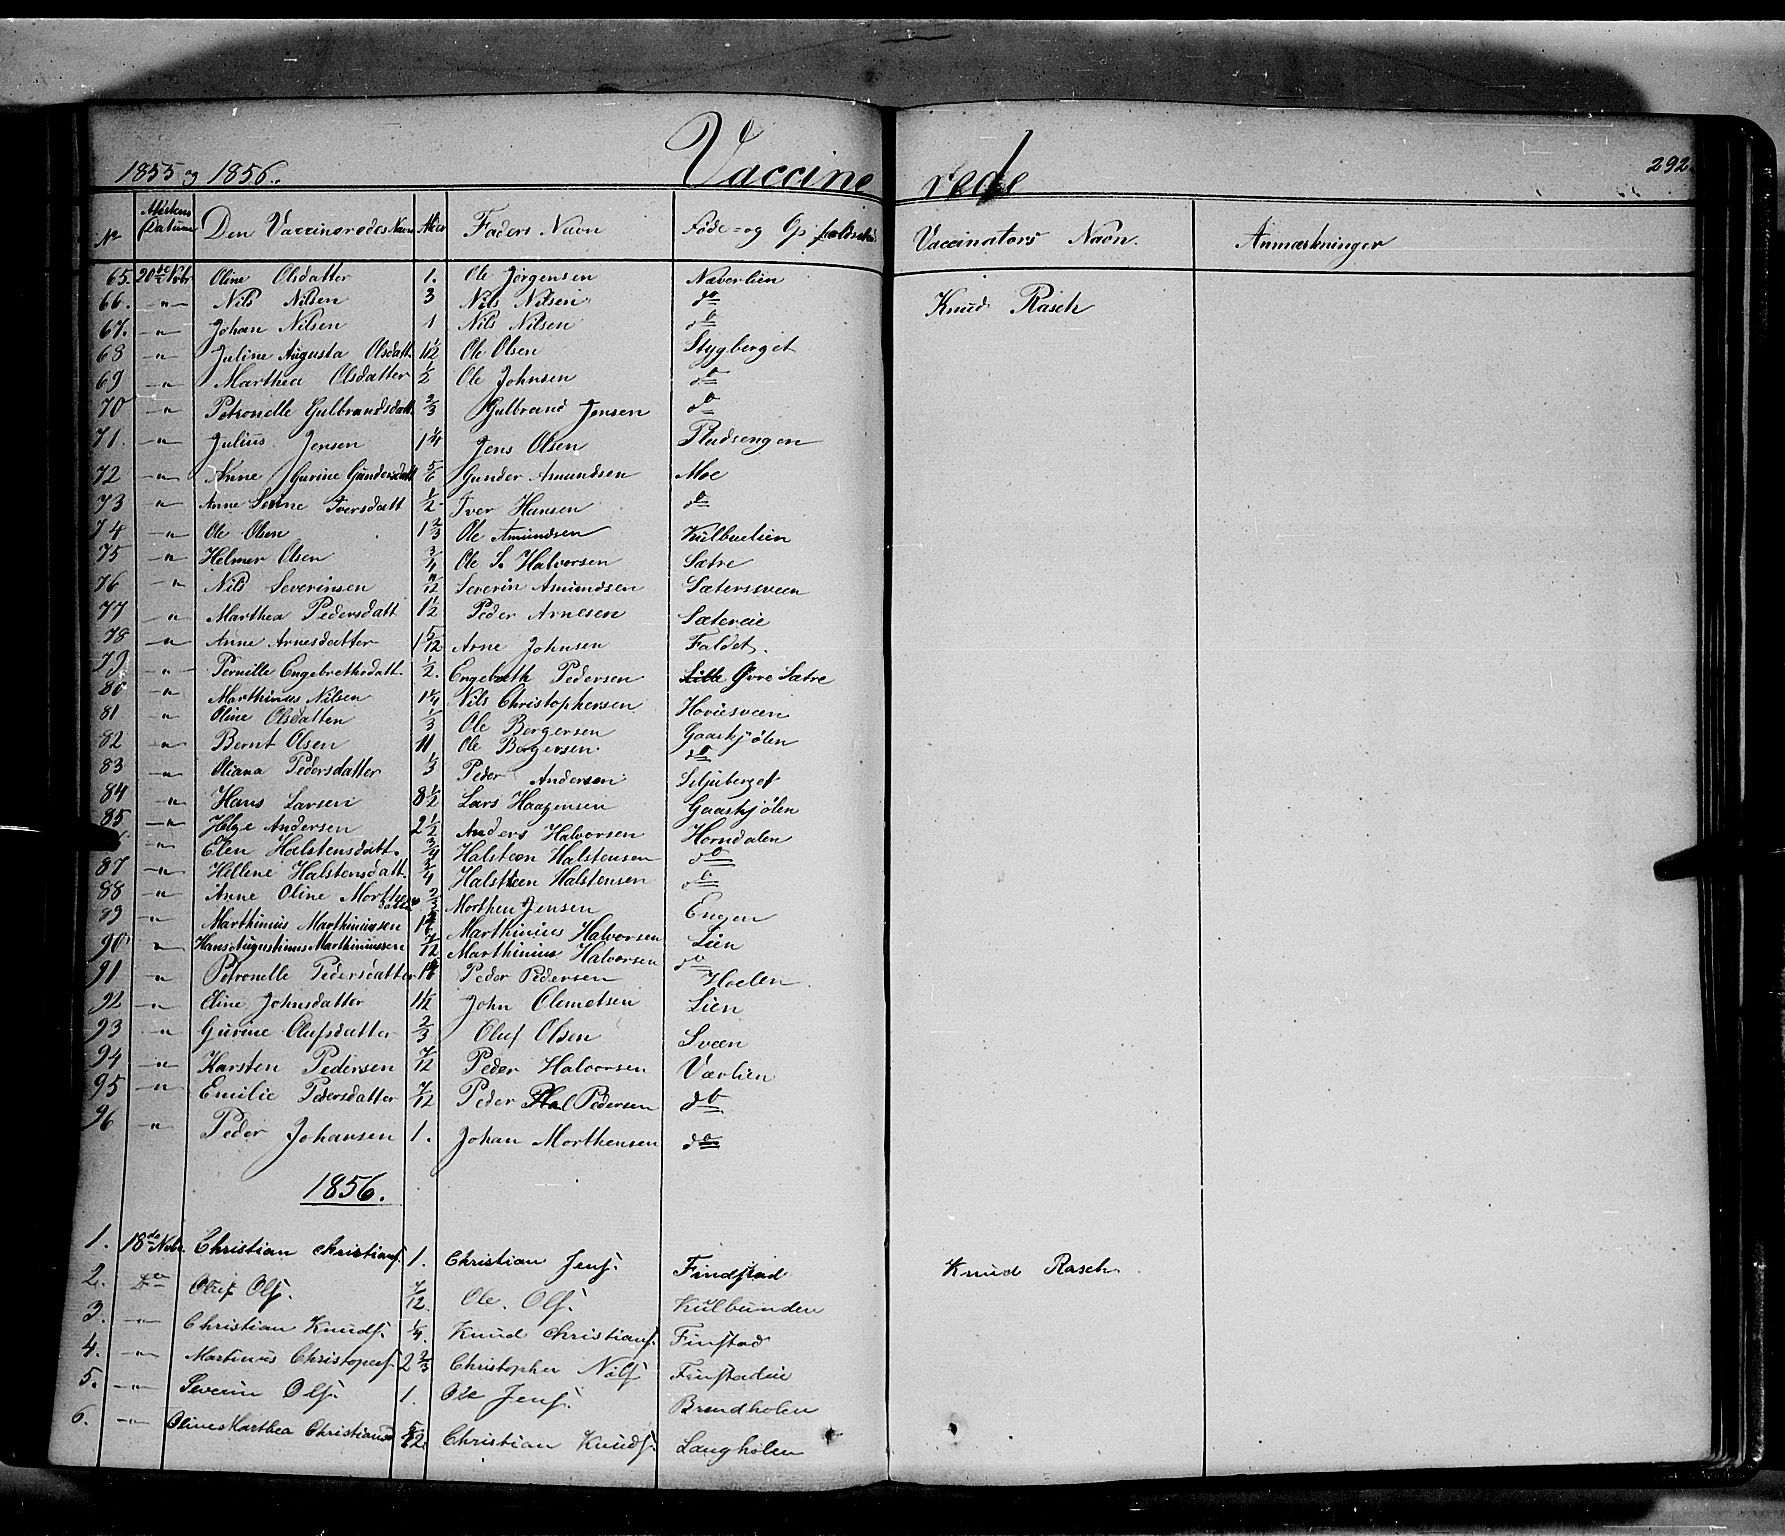 1855 og 1856. Vaccinerede 292
No Attestens Datum Den Vaccineredes Navn Alder Faders Navn Føde- og Opholdssted Vaccinators Navn. Anmærkninger
65. 20de Novbr Oline Olsdatter 1. Ole Jørgensen Næverlien
66. —"— Nils Nilsen 3 Nils Nilsen do Knud Rasch
67. —"— Johan Nilsen 1 Nils Nilsen do
68 —"— Juline Augusta Olsdatt. Ole Olsen Stygberget
69 —"— Marthea Olsdatter 1/2 Ole Johnsen do
70 —"— Petronelle Gulbrandsdatt. 2/3 Gulbrand Jensen do
71. —"— Julius Jensen 1 1/4 Jens Olsen Pladsengen
72 —"— Anne Gurine Gundersdatt 5/6 Gunder Amundsen Moe
73 —"— Anne Serine Iversdatt 1/2 Iver Hansen do
74 —"— Ole Olsen 1 2/3 Ole Amundsen Kulbuelien
75 —"— Helmer Olsen 3/4 Ole S. Halvorsen Sætre
76 —"— Nils Severinsen Severin Amundsen Sætersveen
77 —"— Marthea Pedersdatt 1 1/2 Peder Arnesen Sætereie
78 —"— Anne Arnesdatter 1 5/12 Arne Johnsen Faldet.
79 —"— Pernille Engebrethsdatt. 1/2. Engebreth Pedersen Øvre Sætre
80 —"— Marthinus Nilsen 1 1/4 Nils Christophersen Hovisveen
81 —"— Oline Olsdatter 1/3 Ole Bergersen Gaaskjølen
82 —"— Bernt Olsen 11 Ole Bergersen do
83 —"— Oliana Pedersdatter 1/3 Peder Andersen Siljuberget
84 —"— Hans Larsen 8 1/2 Lars Haagensen Gaaskjølen
85 —"— Helge Andersen 2 1/2 Anders Halvorsen Horndalen
—"— Elen Halstensdatt. 3/4 Halsteen Halstensen do
87 —"— Hellene Halstensdatt. 3/4 Halsteen Halstensen do
88 —"— Anne Oline Morthensdatter 2/3 Morthen Jensen Engen
89 —"— Marthinius Marthiniusen Marthinius Halvorsen Lien
90 —"— Hans Augustinus Marthiniussen 7/12 Marthinius Halvorsen do
91 —"— Petronelle Pedersdatter Peder Pedersen Hoelen.
92 —"— Eline Johnsdatter John Clemetsen Lien
93 —"— Gurine Olufsdatter 2/3 Oluf Olsen Sveen
94 —"— Karsten Pedersen 7/12 Peder Halvorsen Værlien
95 —"— Emilie Pedersdatter 7/12 Peder Pedersen do
96 —"— Peder Johansen 1. Johan Morthensen do
1856.
1. 18de Novbr. Christian Christiansf. 1. Christian Jensf. Findstad Knud Rasch.
2. Do Oluf Olsf. 7/12. Ole Olsf. Kulbunden
3. —"— Christian Knudsf. 1/4. Knud Christiansf. Finstad
4. —"— Martinus Christopersf. 2 2/3 Christopher Nilsf Finstadeie
5. —"— Severin Olsf. 1. Ole Jensf. Brendholen
6. —"— Oline Marthea Christiansd Christian Knudsf. Langholen